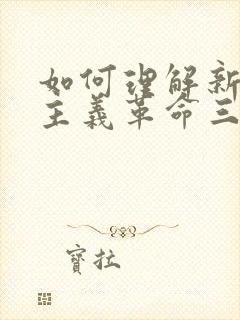 如何理解新
主义革命三
寶拉